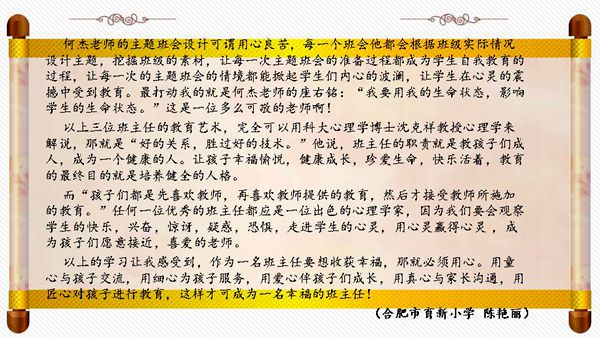 何杰老师的主题班会设计可谓用心良苦，每一个班会他都会根据班级实际情况
设计主题，挖掘班级的素材，让每一次主题班会的准备过程都成为学生自我教育的
过程，让每一次的主题班会的情境都能掀起学生们内心的波澜，让学生在心灵的震
撼中受到教育。最打动我的就是何杰老师的座右铭：“我要用我的生命状态，影响
学生的生命状态。”这是一位多么可敬的老师啊！
以上三位班主任的教育艺术，完全可以用科大心理学博士沈克祥教授心理学来
解说，那就是“好的关系，胜过好的技术。”他说，班主任的职责就是教孩子们成
人，成为一个健康的人。让孩子幸福愉悦，健康成长，珍爱生命，快乐活着，教育
的最终目的就是培养健全的人格。
而“孩子们都是先喜欢教师，再喜欢教师提供的教育，然后才接受教师所施加
的教育。”任何一位优秀的班主任都应是一位出色的心理学家，因为我们要会观察
学生的快乐，兴奋，惊讶，疑惑，恐惧，走进学生的心灵，用心灵赢得心灵 ，成
为孩子们愿意接近，喜爱的老师。
以上的学习让我感受到，作为一名班主任要想收获幸福，那就必须用心。用童
心与孩子交流，用细心为孩子服务，用爱心伴孩子们成长，用真心与家长沟通，用
匠心对孩子进行教育，这样才可成为一名幸福的班主任！
（合肥市育新小学 陈艳丽）